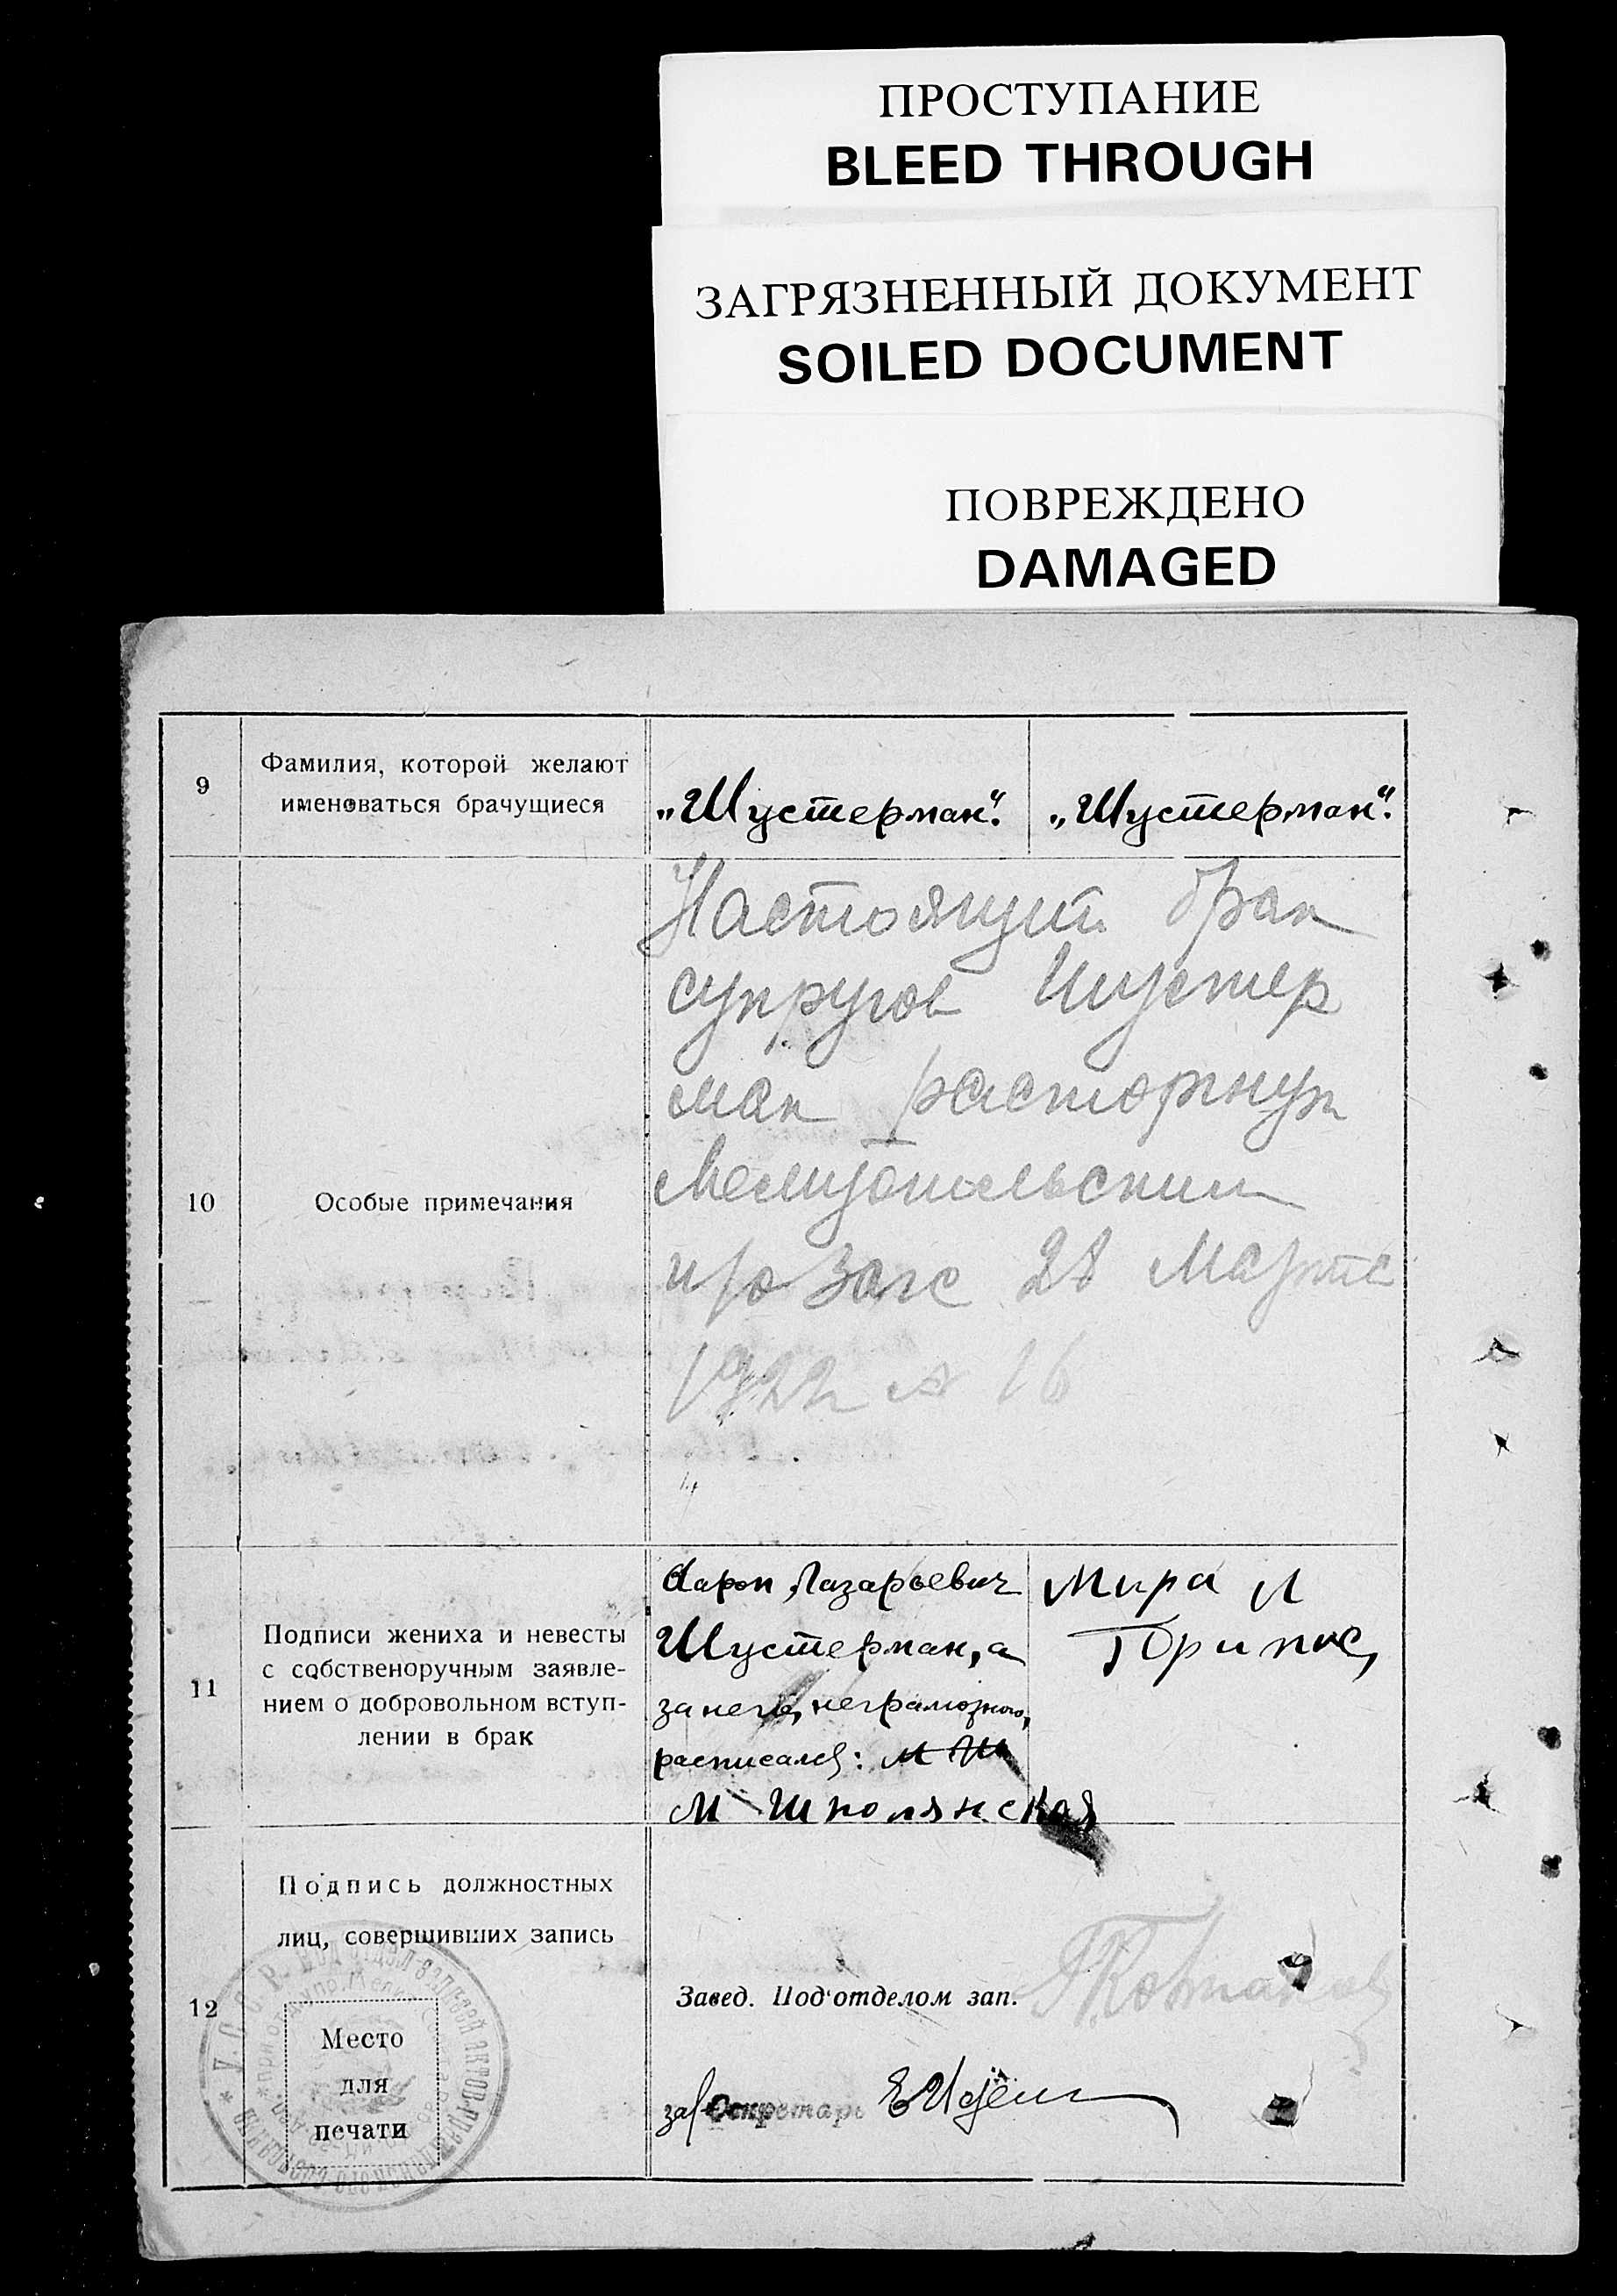 ПРОСТУПАНИЕ
BLEED THROUGH
ЗАГРЯЗНЕННЫЙ ДОКУМЕНТ
SOILED DOCUMENT
ПОВРЕЖДЕНО
DAMAGED
9
Фамилия, которой желают
именоваться брачущиеся
„Шустерман“.
„Шустерман“.
10
Особые примечания
Настоящий брак
супругов Шустер
ман расторгнут
Мелитопольским
1922 № 16
п/о Загс 28 Марта
11
Подписи жениха и невесты
с собственоручным заявле-
нием о добровольном вступ-
лении в брак
Аарон Лазарьевич
Шустерман, а
за него, неграмотного,
расписался: М Ш
М Школянская
Мира Л
12
Подпись должностных
лиц, совершивших запись
Место
для
печати
Завед. Под'отделом зап.
за/ Секретарь